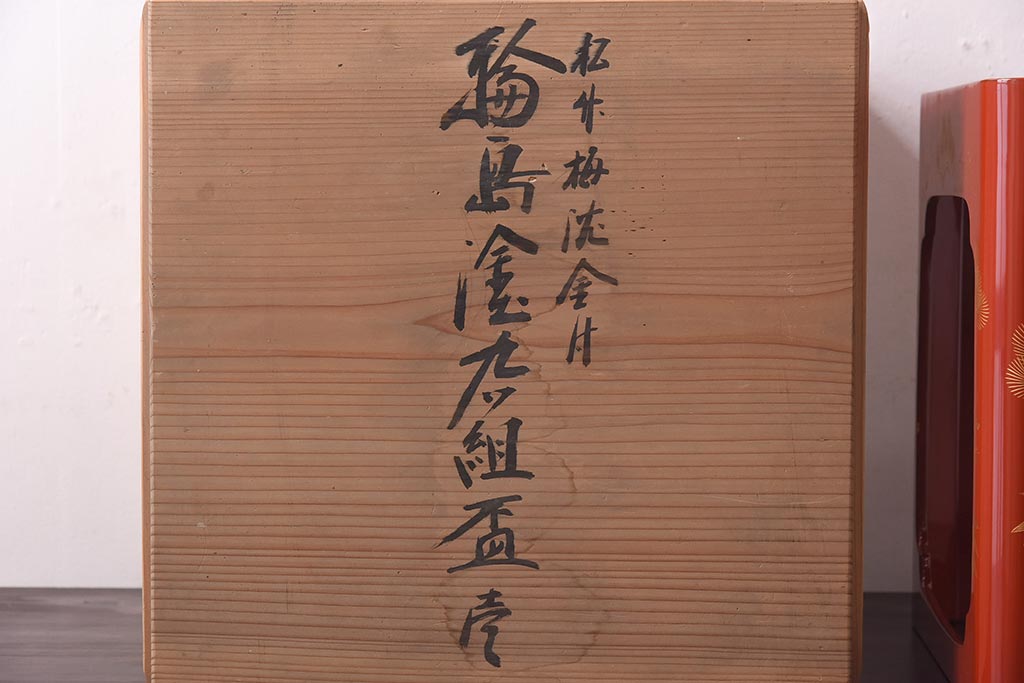 松竹梅沈金付
輪島塗九ツ組盃壱